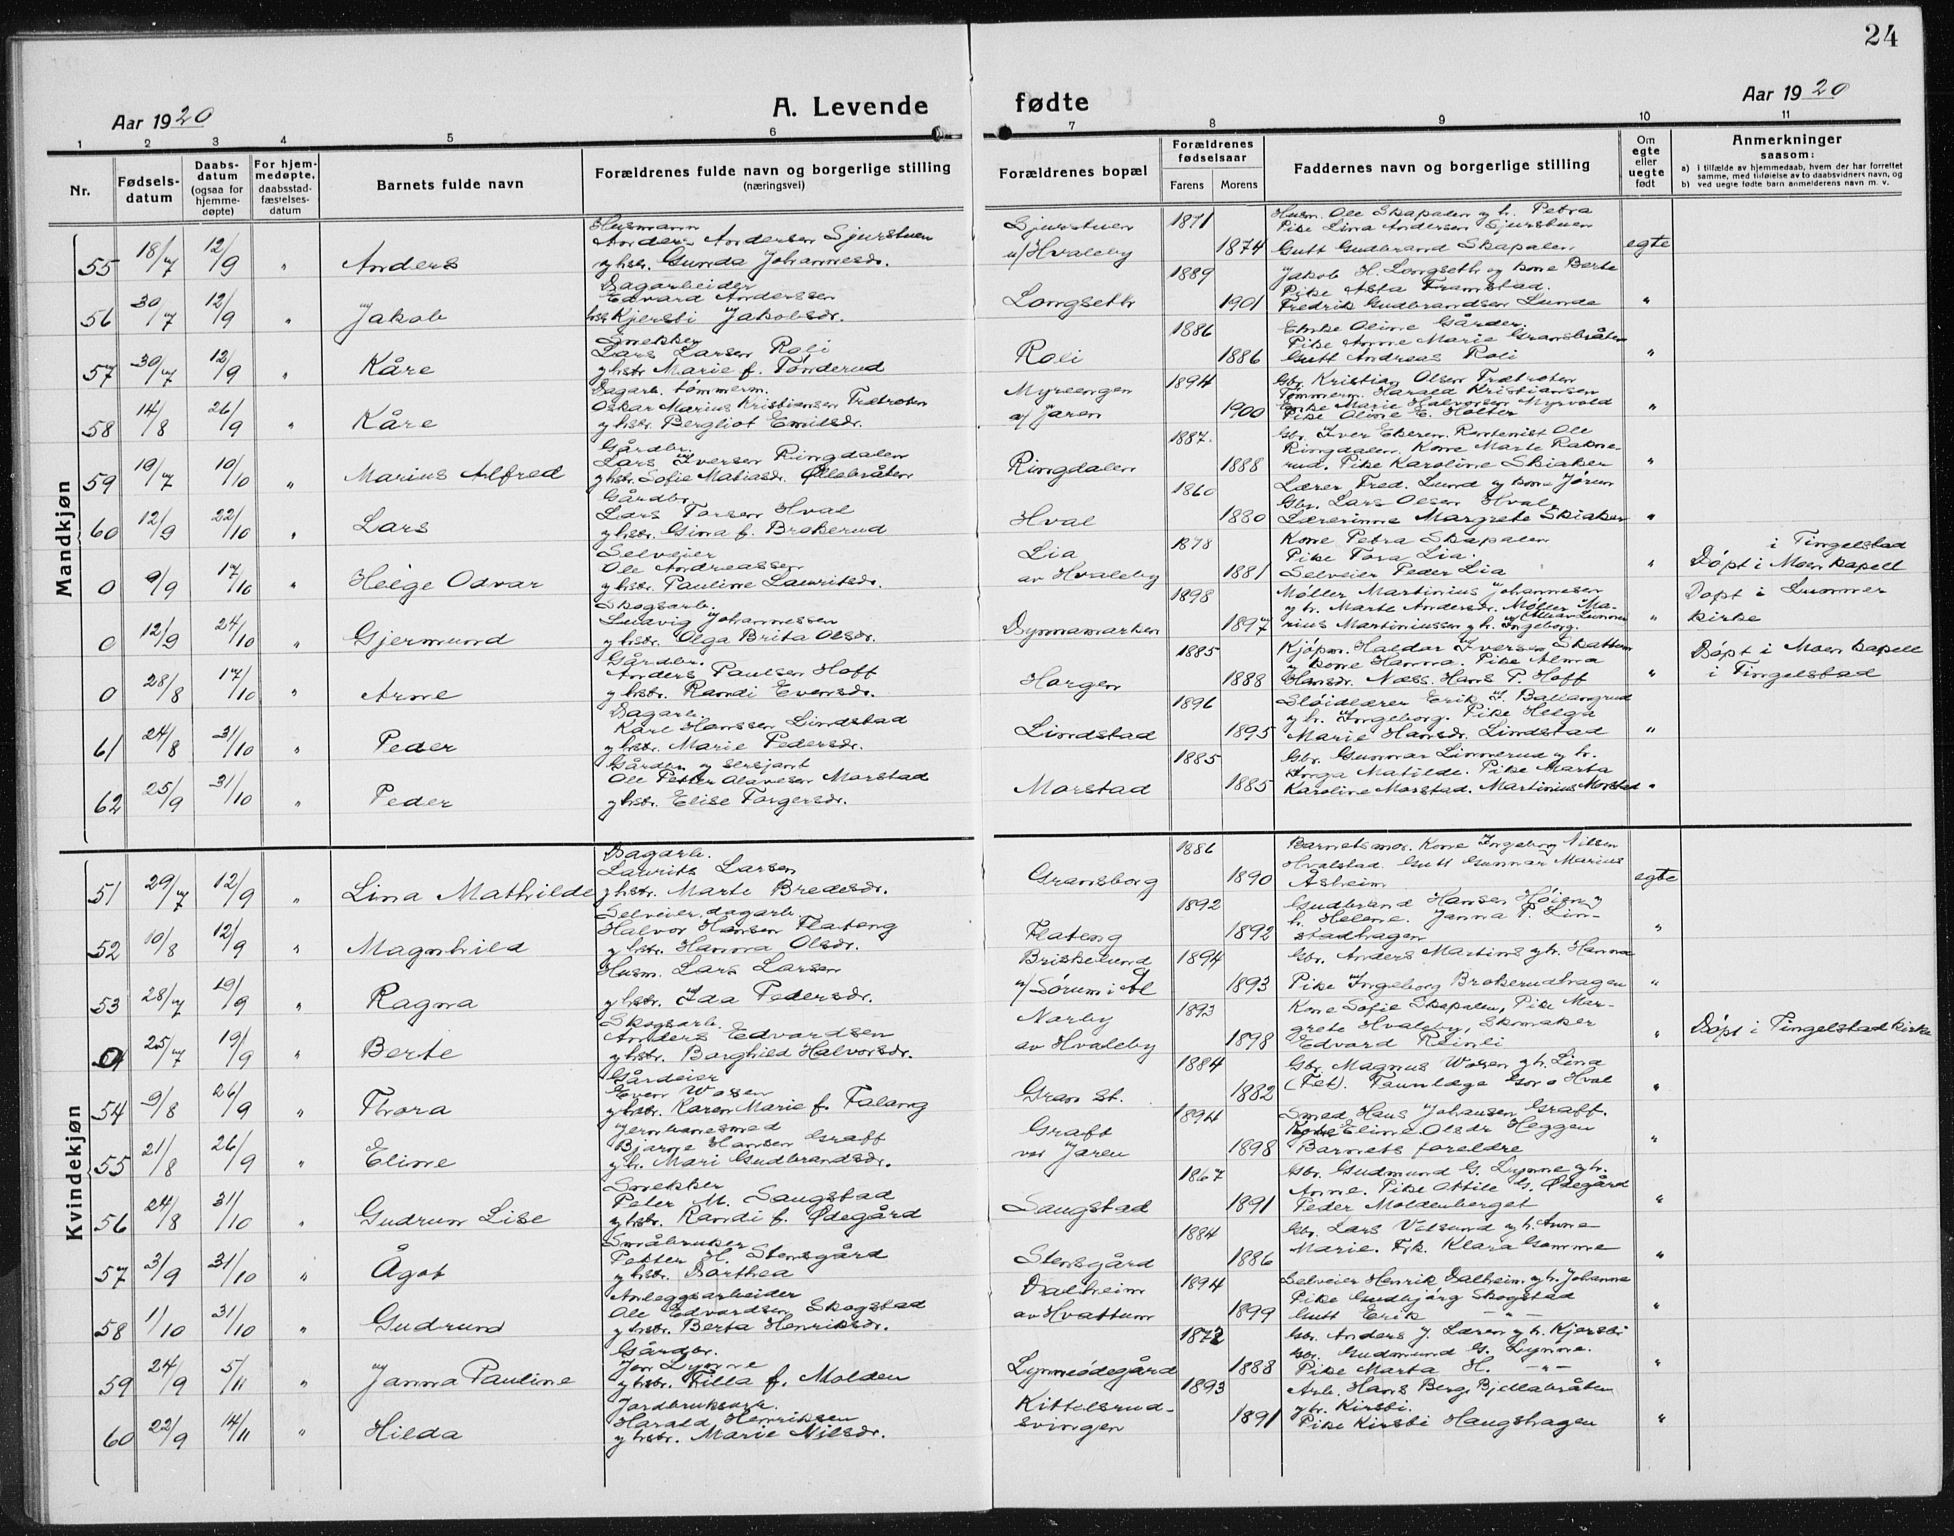 24
Aar 1920
A. Levende fødte
Aar 1920
1 2 3 4 5 6 7 8 9 10 11
Nr.
Fødsels-
datum
Daabs-
datum
(ogsaa for
hjemme-
døpte)
For hjem-
medøpte,
daabsstad-
fæstelses-
datum
Barnets fulde navn
Forældrenes fulde navn og borgerlige stilling
(næringsvei)
Forældrenes bopæl
Forældrenes
fødselsaar
Farens Morens
Faddernes navn og borgerlige stilling
Om
egte
eller
uegte
født
Anmerkninger
saasom:
a) i tilfælde av hjemmedaab, hvem der har forrettet
samme, med tilføielse av to daabsvidners navn, og
b) ved uegte fødte barn anmelderens navn m. v.
Mandkjøn
Husmann
Anders Andersen Sjurstuen
55 18/7 12/9 " Anders
yhstr. Gunda Johannesdr.
Sjurstuen
u/Hvaleby
1871 1874
Husm. Ole Skapalen y h. Petra
Pike Lina Andersen Sjurstuen
Gutt Gudbrand Skapalen
egte
Dagarbeider
Edvard Anderssen
56 30/7 12/9 " Jakob
Kjersti Jakobsdr.
Longseth
1889 1901
Jakob H. Longseth og kone Berte
Pike Asta Framstad.
Fredrik Gudbrandsen Lunde
"
Snekker
Lars Larsen Roli
57 30/7 12/9 " Kåre
yhstr Marie f. Tønderud
Roli
1886 1886
Enke Oline Gårder.
Pike Anne Marie Gransbråten
Gutt Andreas Roli
"
Dagarb. tømmerm.
Oskar Marius Kristiansen Trætroten
58 14/8 26/9 " Kåre
yhstr. Bergliot Emilsdr.
Myrengen
a/ Jaren
1894 1900
Gbr. Kristian Olsen Trætroten
Tømmerm. Harald Kristiansen
Enke Marie Halvorsen Myrvold
Pike Oline E. Holter
"
Gårdbr.
Lars Iversen Ringdalen
59 19/7 10/10 " Marius Alfred
yhstr. Sofie Matiasdr. Øllebråten
Ringdalen
1887. 1888
Gbr. Iver Ekeren. Rentenist Ole
Ringdalen. Kone Marte Rakne-
rud. Pike Karoline Skiaker
"
Gårdbr.
Lars Larsen Hval
60 12/9 22/10 " Lars
yhstr. Gina f. Brokerud
Hval
1860 1880
Lærer Fred. Lund y kone Jørun
Gbr. Lars Olsen Hval,
Lærerinne Margrete Skiaker
"
Selveier
Ole Andreassen
0 9/9 17/10 " Helge Odvar
yhstr. Pauline Lauritsdr.
Lia
av Hvaleby
1878 1881
Kone Petra Skapalen
Pike Tora Lia.
Selveier Peder Lia
"
i Tingelstad
Døpt i Moen kapell
Skogsarb.
Ludvig Johannessen
0 12/9 24/10 " Gjermund
yhstr. Olga Brita Olsdr.
Dynnamarken
1898 1897
Møller Martinius Johannesen
y h. Marte Andersdr. Møller Ma-
rius Martiniussen y h. Ingeborg.
"
Døpt i Lunner
kirke
Gårdbr.
Anders Paulsen Hoff
0 28/8 17/10 " Arne
yhstr. Randi Evensdr.
Horgen
1885 1888
Kjøpm. Haldor Iversen Skattum
y kone Hanna. Pike Alma
Hansdr. Næss. Hans P. Hoff
"
Døpt i Moen kapell
i Tingelstad
Dagarb.
Kåre Hanssen Lindstad
61 24/8 31/10 " Peder
yhstr. Marie Pedersdr.
Lindstad
1896 1895
Sløidlærer Erik I. Ballangrud
y h. Ingeborg. Pike Helga
Marie Hansdr. Lindstad
"
Gårdbr. y sersjant
Ole Petter Olavesen Morstad
62 25/9 31/10 " Peder
yhstr. Elise Torgersdr.
Morstad
1885 1885
Gbr. Gunnar Linnerud y h.
Inga Matilde. Pike Marta
Karoline Morstad. Martinius Morstad
"
Kvindekjøn
Dagarb.
Laurits Larsen
51 29/7 12/9 " Lina Mathilde
yhstr. Marte Bredesdr.
Gransborg
1886 1890
Barnets mor. Kone Ingeborg Nilsen
Hvalstad. Gutt Gunnar Marius
Åsheim
egte
Selveier, dagarb.
Halvor Hansen Flateng
52 10/8 12/9 " Magnhild
yhstr. Hanna Olsdr.
Flateng
1892 1892
Gudbrand Hansen Høien y
h. Helene. Janna P. Lin-
stadhagen
"
Husm. Lars Larsen
53 28/7 19/9 " Ragna
yhstr. Ida Pedersdr.
Briskelund
u/Sørum i Ål
1894 1893
Gbr. Anders Martins y h. Hanna
Pike Ingeborg Brokerudhagen
"
Skogsarb.
Anders Edvardsen
0 25/7 19/9 " Berte
yhstr. Borghild Halvorsdr.
Norby
av Hvaleby
1893 1898
Kone Sofie Skapalen, Pike Mar-
grete Hvaleby, Skomaker
Edvard Reinli
"
Døpt i Tingelstad kirke
Gårdeier
Even Woien
54 9/8 26/9 " Thora
yhstr. Karen Marie f. Falang
Gran st.
1884 1882
Gbr. Magnus Woien y h. Lina
(Fet). Tannlæge Goro Hval
"
Jernbanesmed
Bjarne Hansen Graff
55 21/8 26/9 " Eline
y h. Mari Gudbrandsdr.
Graff
ved Jaren
1894 1898
Smed Hans Johansen Graff.
Kone Eline Olsdr Heggen
Barnets foreldre
"
Snekker
Peter M. Saugstad
56 24/8 31/10 " Gudrun Lise
yhstr. Randi f. Ødegård
Saugstad
1867 1891
Gbr. Gudmund G. Lynne y h.
Anne. Pike Ottile G. Ødegård
Peder Moldenberget
"
Småbruker
Petter H. Stensgård
57 3/9 31/10 " Ågot
yhstr. Dorthea
Stensgård
1884 1886
Gbr. Lars Velsund y h. Anne
Marie. Frk. Klara Gamme
"
Anleggsarbeider
Ole Edvardsen Skogstad
58 1/10 31/10 " Gudrund
yhstr. Berta Henriksdr.
Dalheim
av Hvattum
1894 1899
Selveier Henrik Dalheim y h. Johanne
Pike Gudbjørg Skogstad
Gutt Erik - " -
"
Gårdbr.
Jon Lynne
59 24/9 5/11 " Janna Pauline
yhstr. Tilla f. Molden
Lynneødegård
1872 1888
Gbr. Anders J. Læren y h. Kjersti
Gbr. Gudmund G. Lynne.
Pike Marta H. - " -
"
Jordbruksarb.
Harald Henriksen
60 22/9 14/11 " Hilda
yhstr. Marie Nilsdr.
Kittelsrud-
svingen
1893 1891
Arb. Hans Berg, Bjellabråten
y h. Kirsti.
Pike Kirsti Haugshagen
"